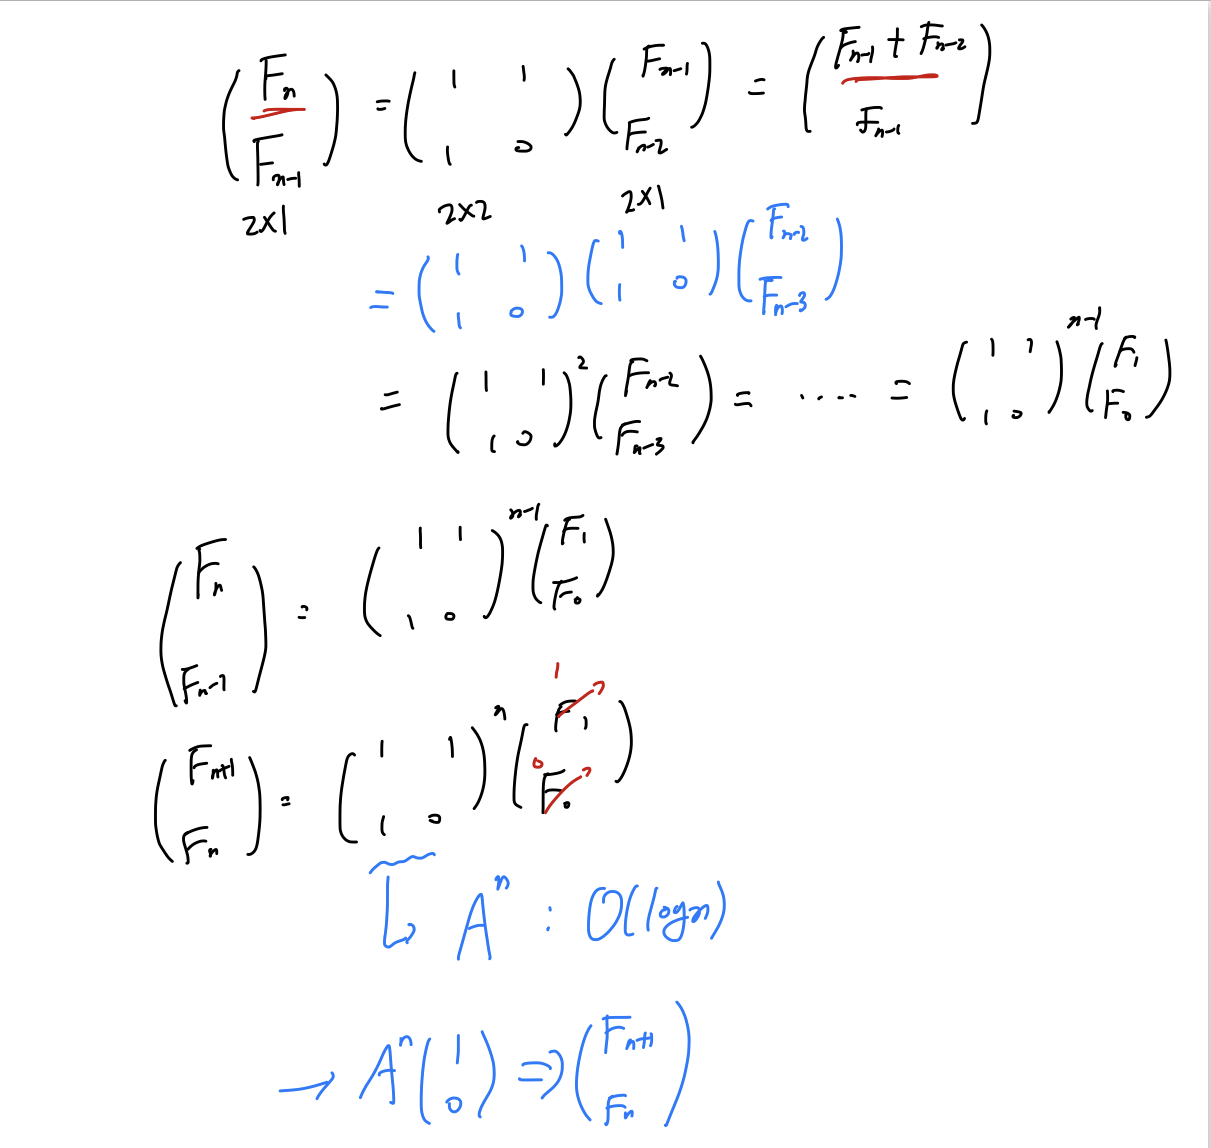 (F_n F_{n-1}) = (1 1 1 0) (F_{n-1} F_{n-2}) = (F_{n-1} + F_{n-2} F_{n-1})
2×1 2×2 2×1
= (1 1 1 0) (1 1 1 0) (F_{n-2} F_{n-3})
= (1 1 1 0)^2 (F_{n-2} F_{n-3}) = ..... = (1 1 1 0)^{n-1} (F_1 F_0)
(F_n F_{n-1}) = (1 1 1 0)^{n-1} (F_1 F_0)
(F_{n+1} F_n) = (1 1 1 0)^n (F_1 1 F_0 0)
↳ A^n : O(logn)
→ A^n (1 0) ⇒ (F_{n+1} F_n)